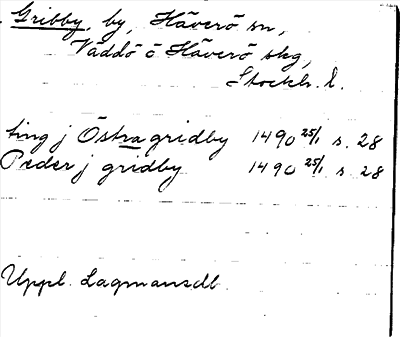 Gribby, by, Häverö sn,
Väddö o Häverö skg,
Stockh. l.
ting j Östra gridby 1490 25/1 s. 28
Peder j gridby 1490 25/1 s. 28
Uppl. Lagmansdb.